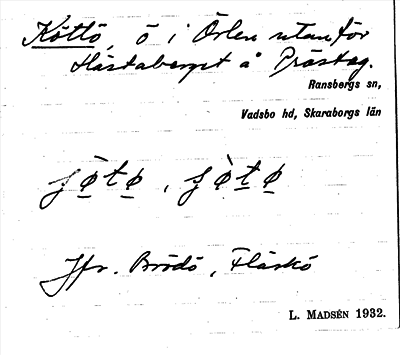 Köttö, ö i Örlen utanför
Hästaberget å Prästeg.
Ransbergs sn,
Vadsbo hd, Skaraborgs län
Jfr. Brödö, Fläskö
L. MADSÉN 1932.